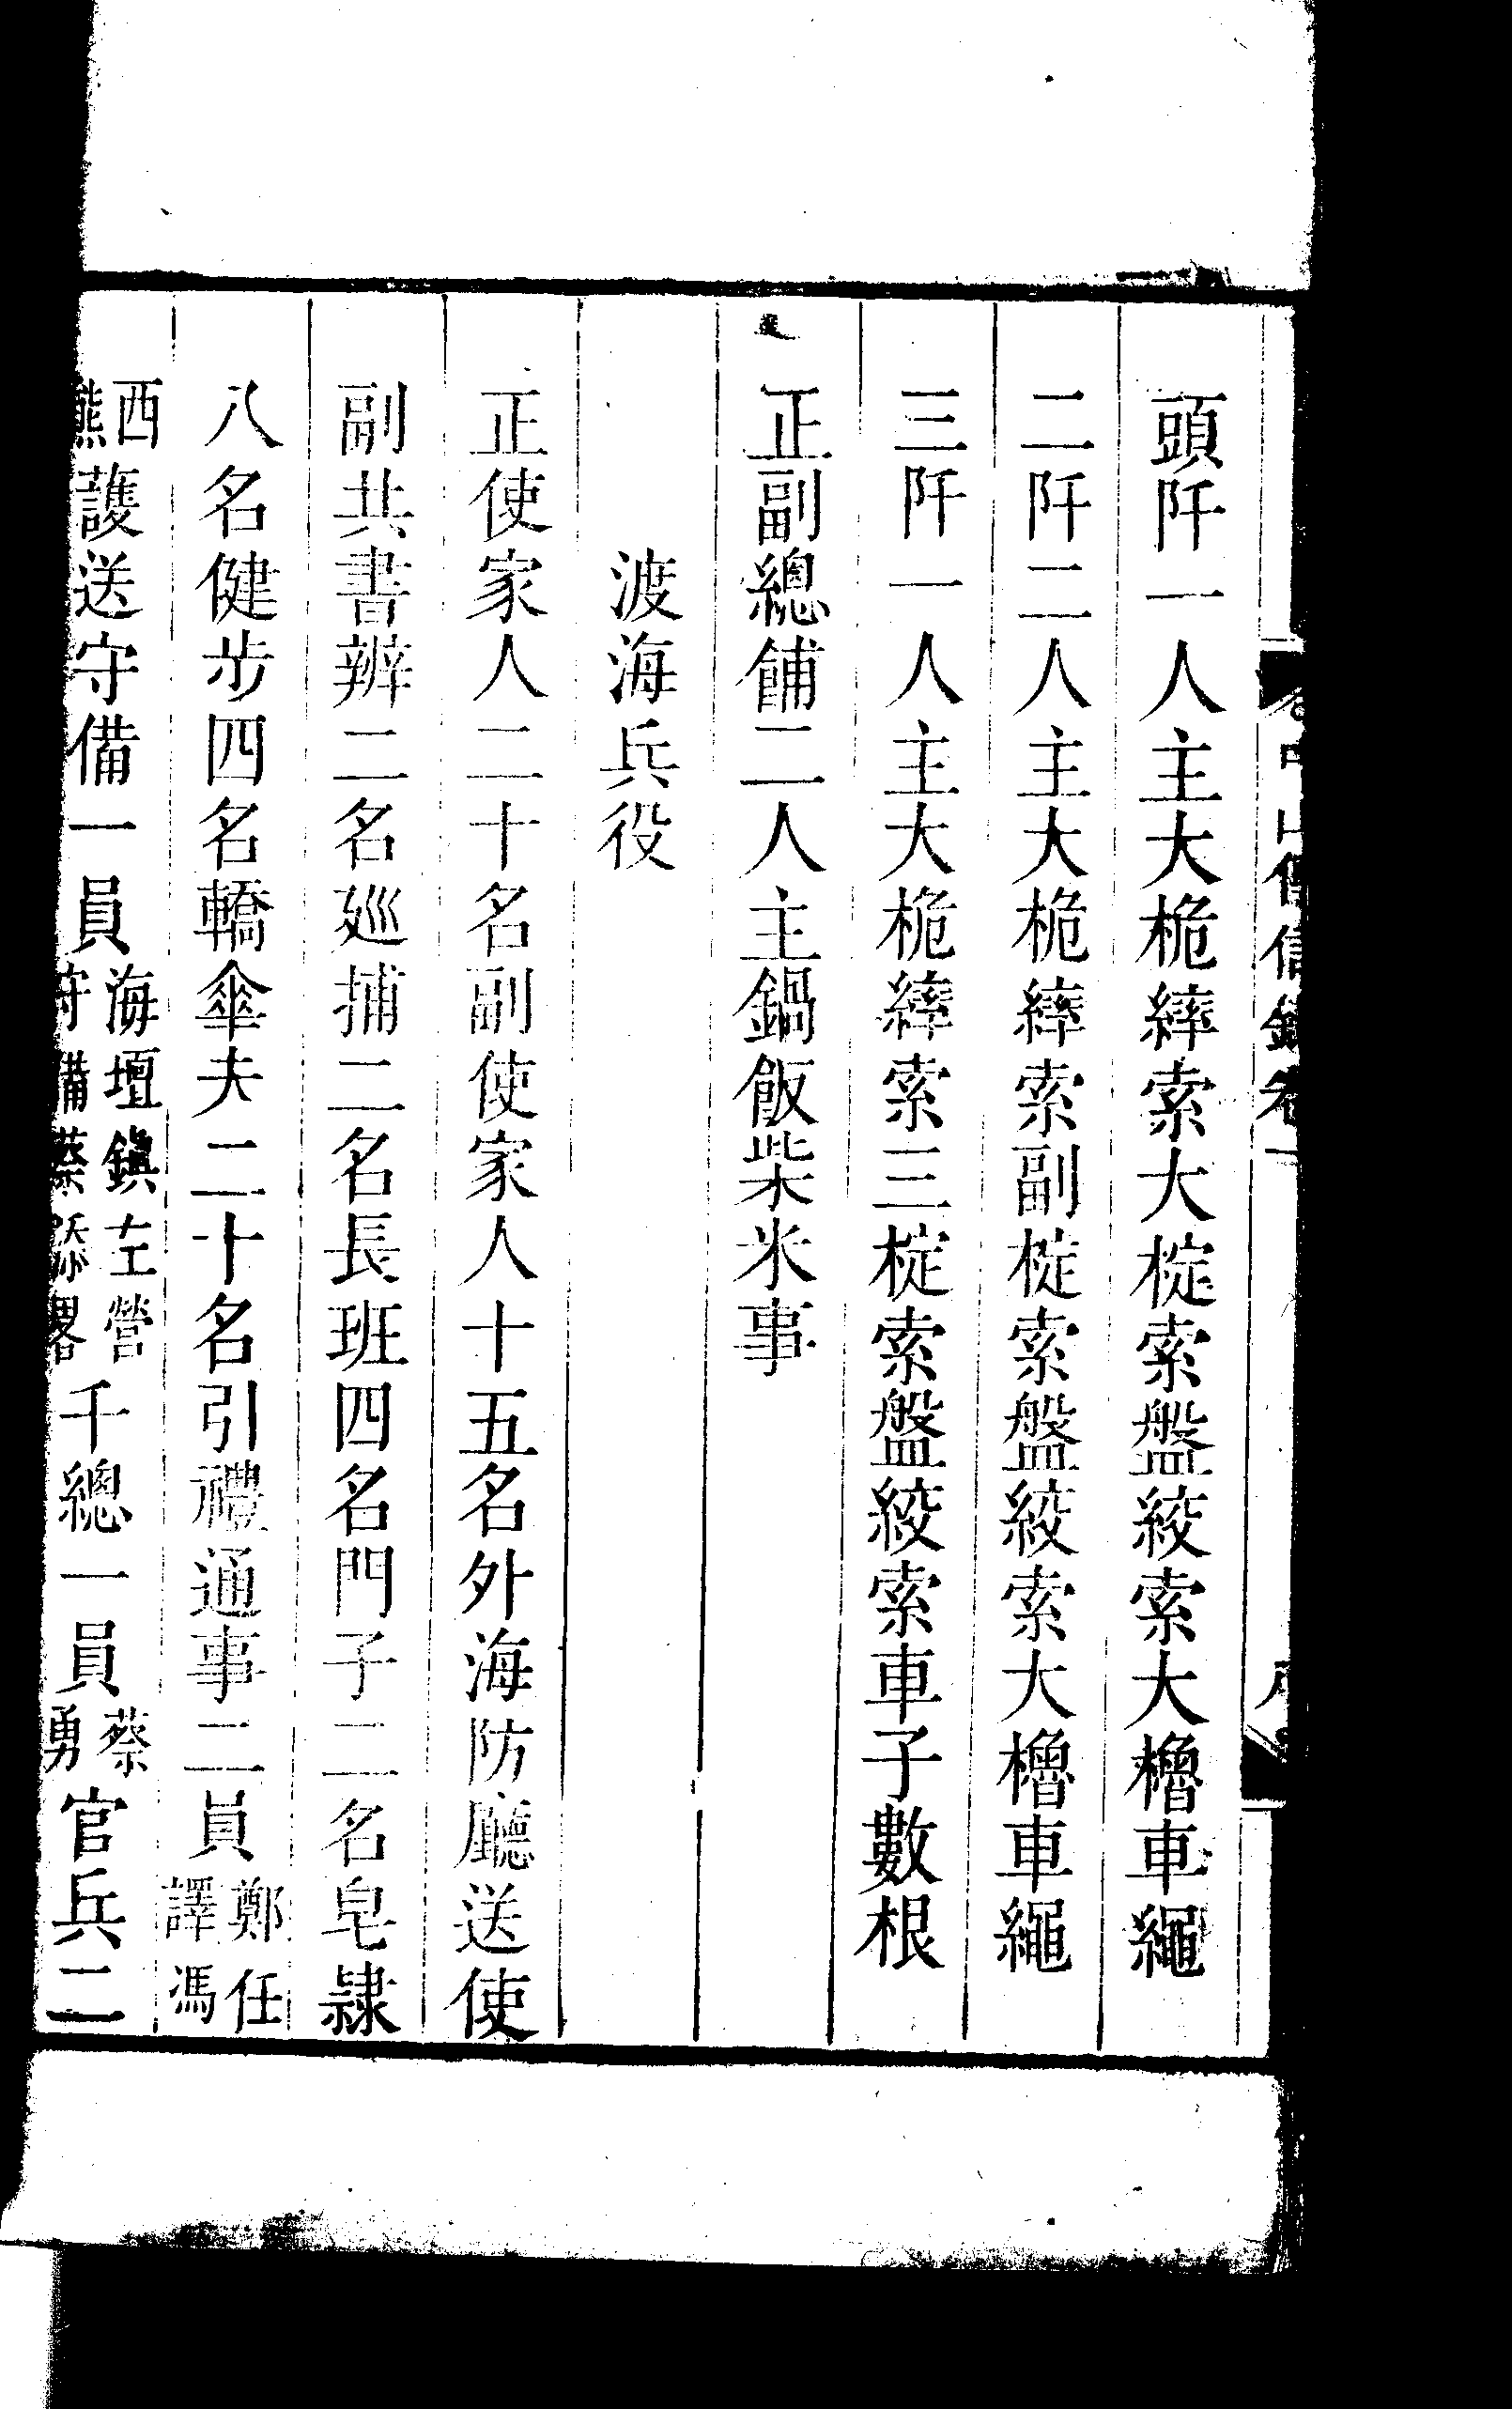 中山傳信錄卷一
頭阡一人主大桅繂索大椗索盤絞索大櫓車繩
二阡二人主大桅繂索副椗索盤絞索大櫓車繩
三阡一人主大桅繂索三椗索盤絞索車子數根
正副總餔二人主鍋飯柴米事
渡海兵役
正使家人二十名副使家人十五名外海防廳送使
副共書辨二名廵捕二名長班四名門子二名皂隸
八名健步四名轎傘夫二十名引禮通事二員鄭任譯馮
西熊護送守備一員海壇鎮左營守備蔡添畧千總一員蔡勇官兵二